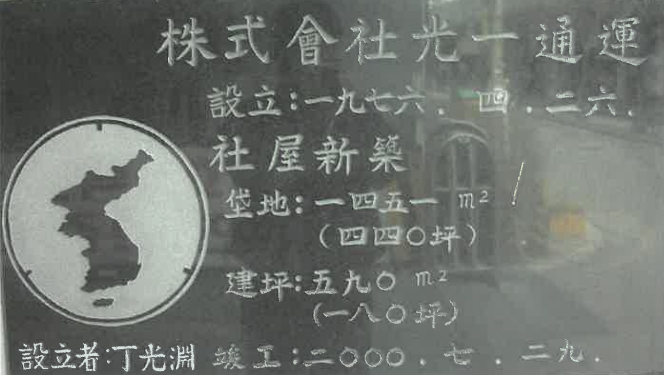 株式會社光一通運
設立:一九七六.四.二六.
社屋新築
垈地:一四五一 m²
(四四〇坪)
建坪:五九〇 m²
(一八〇坪)
設立者:丁光淵 竣工:二〇〇〇.七.二九.